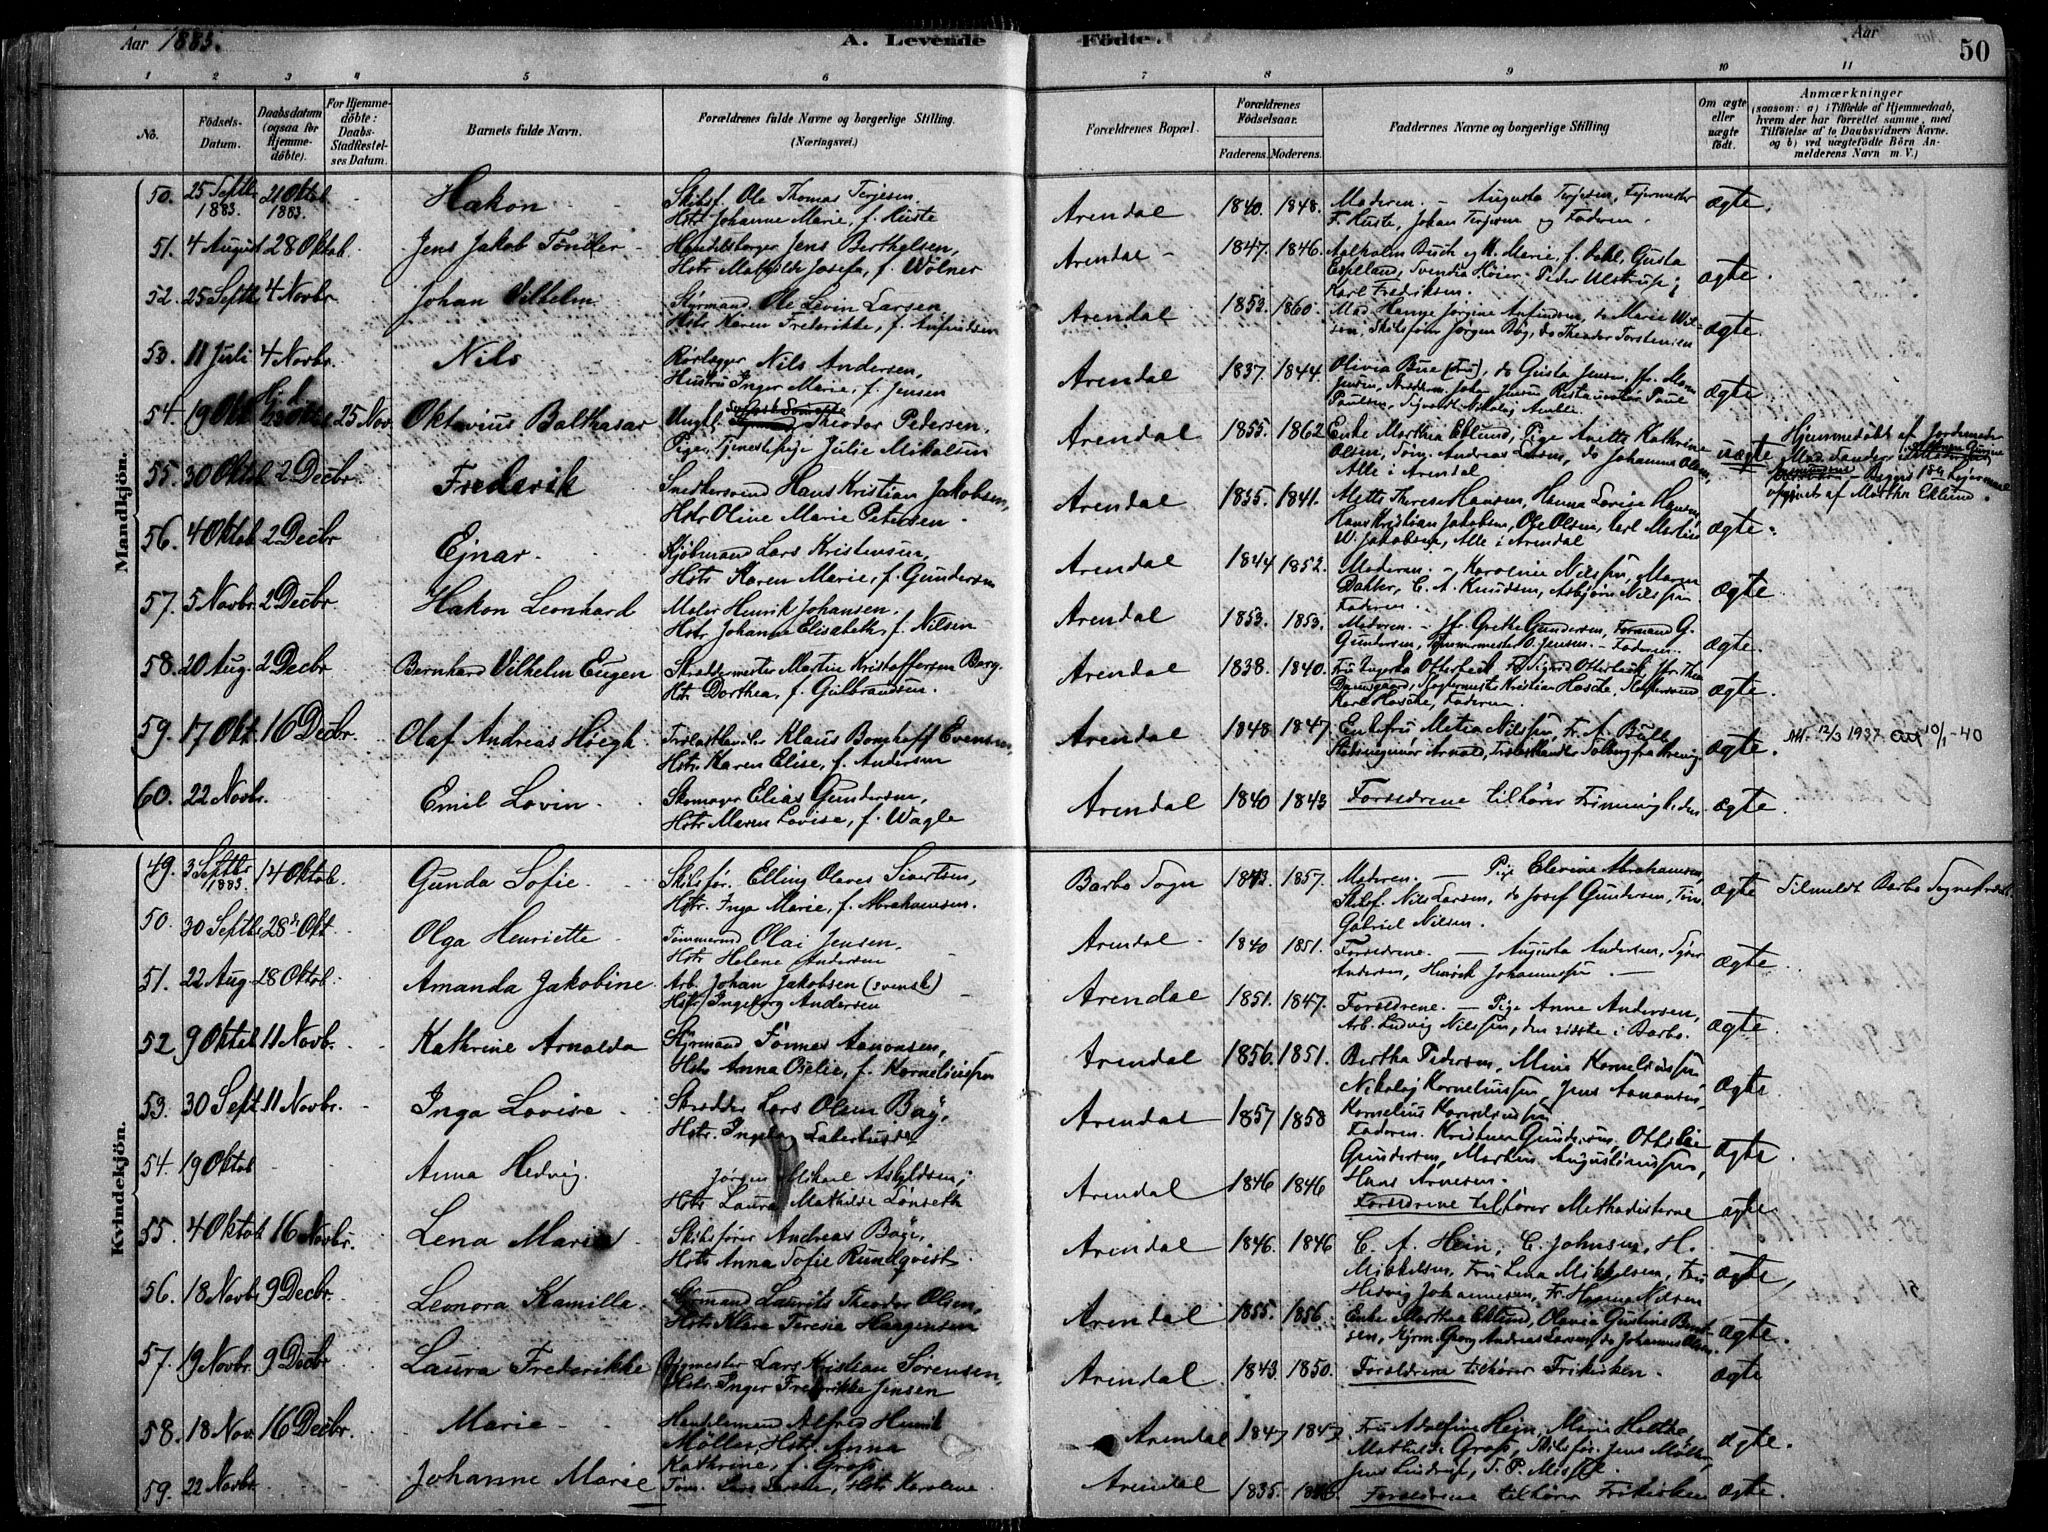 Aar 1883.
A. Levende
Födte.
Aar
50
1 2 3 4 5 6 7 8 9 10 11
No.
Födsels-Datum.
Daabsdatum (ogsaa for Hjemmedöbte).
For Hjemmedöbte: Daabs-Stadfæstelses Datum.
Barnets fulde Navn.
Forældrenes fulde Navne og borgerlige Stilling. (Næringsvei.)
Forældrenes Bopæl.
Forældrenes Födselsaar.
Faderens. Moderens.
Faddernes Navne og borgerlige Stilling
Om ægte eller uægte födt.
Anmærkninger
(saasom: a) i Tilfælde af Hjemmedaab, hvem der har forrettet samme, med Tilföielse af to Daabsvidners Navne. og b) ved uægtefödte Börn Anmelderens Navn m. V.)
Mandkjön.
50. 25 Septbr 1883. 21 Oktob 1883. Hakon Skibsf. Ole Thomas Terjesen, Hstr Johanne Marie, f. Huste Arendal 1840. 1848. Moderen. - Augusta Terjesen, Fejermester F. Huste, Johan Terjesen og Faderen. ægte.
51. 4 August 28 Oktob. Jens Jakob Tønder Handelsborger Jens Berthelsen, Hstr Mathilde Josefa, f. Wölner Arendal 1847. 1846. Aalholm Buch og H. Marie, f. Dahl, Gusta Espeland, Svendia Høier, Peder Ulstrup, Karl Fredriksen. ægte.
52. 25 Septbr 4 Novbr Johan Vilhelm Styrmand Ole Levin Larsen Hstr Karen Frederikke, f. Anfindsen Arendal 1853. 1860. Mad. Hanne Jørgine Anfindsen, do Marie Wilson, Skibsfører Jørgen Bøg, do Theodor Torstensen ægte.
53. 11 Juli 4 Novbr. Nils Rørlægger Nils Andersen, Hustru Inger Marie, f. Jensen Arendal 1837. 1844. Olivia Bue (Fru), do Gusta Jensen, Paulsen, ægte.
54. 19 Okt Hj.d. 25 Nov. Oktavius Balthasar Ungkl. Theodor Pedersen, Pige, Tjenestepige Julie Mikalsen Arendal 1855. 1862 Enke Martha Eklund, Pige Anette Kathrine Olsen, Tøm. Andreas Larsen, do Johannes Olsen, Alle i Arendal. uægte Hjemmedøbt af Jordemoder Mad. Sander opgivet af Martha Eklund.
55. 30 Oktob 2 Decbr Frederik Snedkersvend Hans Kristian Jakobsen, Hstr Oline Marie Petersen. Arendal 1835. 1841. Mette Therese Hansen, Hanna Lovise Hansen, Hans Kristian Jakobsen, Ole Olsen, Carl Martius W. Jakobsen, Alle i Arendal ægte.
56. 4 Oktob 2 Decbr Ejnar. Kjøbmand Lars Kristensen, Hstr Karen Marie, f. Gundersen Arendal 1844 1852. Moderen. - Karoline Nilssen, Maren Dakker, C. A. Knudsen, Asbjørn Nilssen Faderen. ægte.
57. 5 Novbr. 2 Decbr Hakon Leonhard Maler Henrik Johansen. Hstr Johanne Elisabeth, f. Nilsen Arendal 1853. 1853. Moderen. - Jfr. Grethe Gundersen, Formand G. Gundersen, Tømmermester O. Jensen. - Faderen. ægte.
58. 20 Aug. 2 Decbr Bernhard Vilhelm Eugen Skræddermester Martin Kristoffersen Berg, Hstr Dorthea, f. Gulbrandsen. Arendal 1838. 1840. Fru Otterbeck, Fr. Sigrid Otterbeck, Jfr. Thea Damsgaard, Kristian Hasche, Karl Hasche, Faderen. ægte.
59. 17 Okt. 16 Decbr. Olaf Andreas Høegh Trælasthandler Klaus Bomhoff Evensen, Hstr. Karen Elise, f. Andersen Arendal 1848 1847 Enkefru Metea Nilssen, Fr. A. Bull Stadsingeniør Arnold, Trælasthandler Solberg fra Krerig. ægte. Att. 12/3 1937 10/1-40
60. 22 Novbr. Emil Lovin Skomager Elias Gundersen, Hstr Maren Lovise, f. Wagle Arendal 1840 1843 Forældrene tilhører Frimenigheden ægte.
Kvindekjön.
49. 3 Septbr 1883. 14 Oktob. Gunda Sofie Skibsfør. Elling Olaves Sivertsen, Hstr. Inga Marie, f. Abrahamsen. Barbo Sogn 1843. 1857. Moderen. - Pige Elevine Abrahamsen, Skibsf. Nils Larsen, do Josef Gundersen, Tøm. Gabriel Nilsen. ægte Tilmeldt Barbo Sognepræst.
50. 30 Septbr 28de Okt. Olga Henriette Tømmermd Olai Jensen, Hstr Helene Andersen Arendal 1840 1851. Forældrene. - Augusta Andersen, Andersen, Henrik Johannessen. ægte.
51. 22 Aug. 28 Oktob. Amanda Jakobine Arb. Johan Jakobsen (svensk) Hstr Ingeborg Andersen Arendal 1851. 1847. Forældrene. - Pige Anne Andersen, Arb. Ludvig Nilssen, den sidste i Barbo. ægte.
52. 9 Oktob 11 Novb. Kathrine Arnalda Styrmand Tønnes Aanonsen, Hstr Anna Oselie, f. Korneliussen Arendal 1856. 1851. Bertha Pedersen, Mine Korneliussen Nikolaj Korneliussen, Jens Aanonsen, Kornelius Korneliussen ægte.
53. 30 Sept. 11 Novbr. Inga Lovise Skrædder Lars Olsen Bøy, Hstr. Ingeborg Arendal 1857 1858 Faderen. Kristine Gundersen, Othilie Gundersen, Markus Augustinussen, Hans Arnesen. ægte.
54. 19 Oktob Anna Hedvig. Jørgen Mikael Askildsen, Hstr Laura Mathilde Lønseth Arendal 1846 1846 Forældrene tilhører Methodisterne ægte.
55. 4 Oktob 16 Novbr. Lena Marie Skibsfører Andreas Bøye, Hstr Anna Sofie Rundqvist. Arendal 1846. 1846 C. A. Hein, C. Johnsen, H. Mikkelsen, Fru Lena Mikkelsen, Fru Hedvig Johannesen, Fr. Hanna Nilsen ægte,
56. 18 Novbr 9 Decbr. Leonora Kamilla Styrmand Laurits Theodor Olsen, Hstr Klara Teresia Haagensen Arendal 1855. 1856. Enke Martha Eklund, Olavia Gustine Bentsen, Styrm. Georg Andreas Larsen, do Johannes Olsen. ægte.
57. 19 Novbr. 9 Decbr Laura Frederikke Bygmester Lars Kristian Sørensen, Hstr. Inger Frederikke Jensen Arendal. 1843. 1850. Forældrene tilhører Frikirken. ægte
58. 18 Nov. 16 Decbr. Marie Handelsmand Alfred Henrik Møller, Hstr. Anna Kathrine, f. Gross. Arendal 1847 Fru Adolfine Hejn, Marie Holthe, Mathilde Gross, Skibsfør. Jens Møller, Jens Lindrup, T. P. ægte.
59. 22 Novbr. Johanne Marie Tøm. Hstr Karoline Arendal 1835. Forældrene tilhører Frikirken ægte.